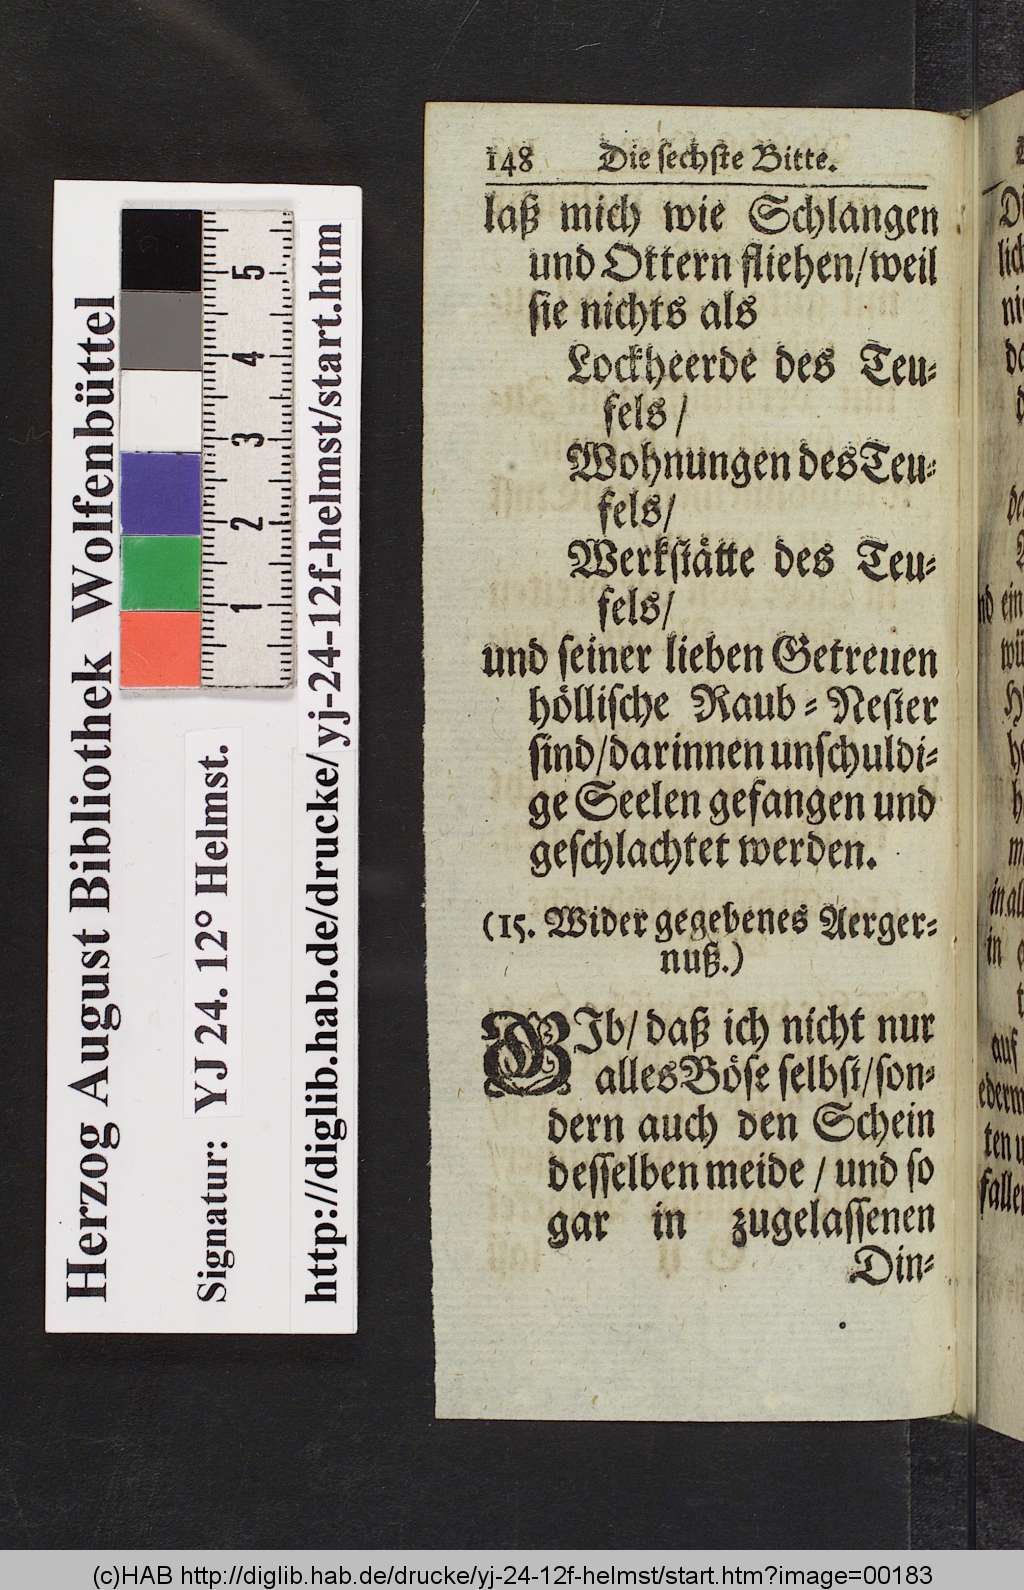 148 Die sechste Bitte.
laß mich wie Schlangen
und Ottern fliehen/weil
sie nichts als
Lockheerde des Teu⸗
fels /
Wohnungen des Teu⸗
fels/
Werkstätte des Teu⸗
fels/
und seiner lieben Getreuen
höllische Raub⸗Nester
sind/darinnen unschuldi⸗
ge Seelen gefangen und
geschlachtet werden.
(15. Wider gegebenes Aerger⸗
nuß.)
GIb/ daß ich nicht nur
alles Böse selbst/son⸗
dern auch den Schein
desselben meide / und so
gar in zugelassenen
Din⸗
Herzog August Bibliothek Wolfenbüttel
Signatur: YJ 24. 12° Helmst.
http://diglib.hab.de/drucke/yj-24-12f-helmst/start.htm
5
4
3
2
1
(c)HAB http://diglib.hab.de/drucke/yj-24-12f-helmst/start.htm?image=00183